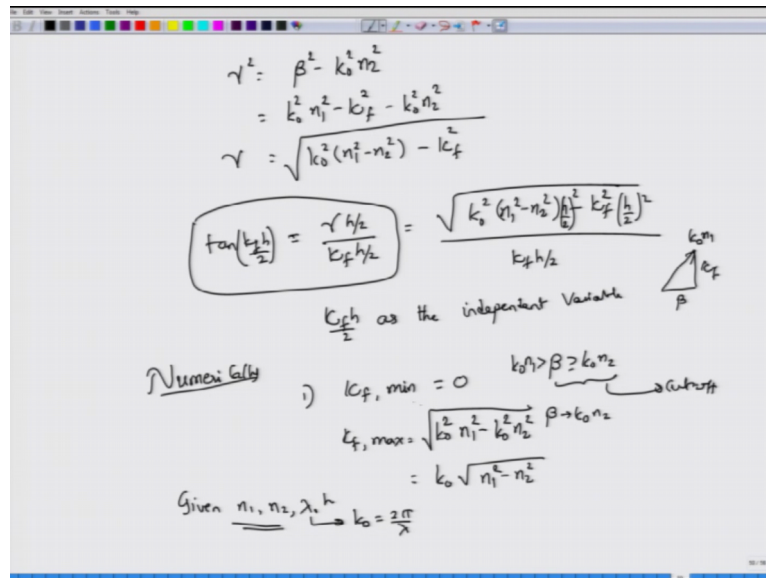 File Edit View Insert Actions Tools Help
γ² = β² - k₀² n₂²
= k₀² n₁² - k_f² - k₀² n₂²
γ = √(k₀² (n₁² - n₂²) - k_f²)
tan(k_f h / 2) = (γ h/2) / (k_f h/2) = √(k₀² (n₁² - n₂²)(h/2)² - k_f² (h/2)²) / (k_f h/2)
k₀n₁
k_f
β
k_f h / 2 as the independent Variable
Numerically
1) k_f, min = 0 k₀n₁ > β ≥ k₀n₂ → cutoff
k_f, max = √(k₀² n₁² - k₀² n₂²) β → k₀n₂
= k₀ √(n₁² - n₂²)
Given n₁, n₂, λ, h
↳ k₀ = 2π/λ